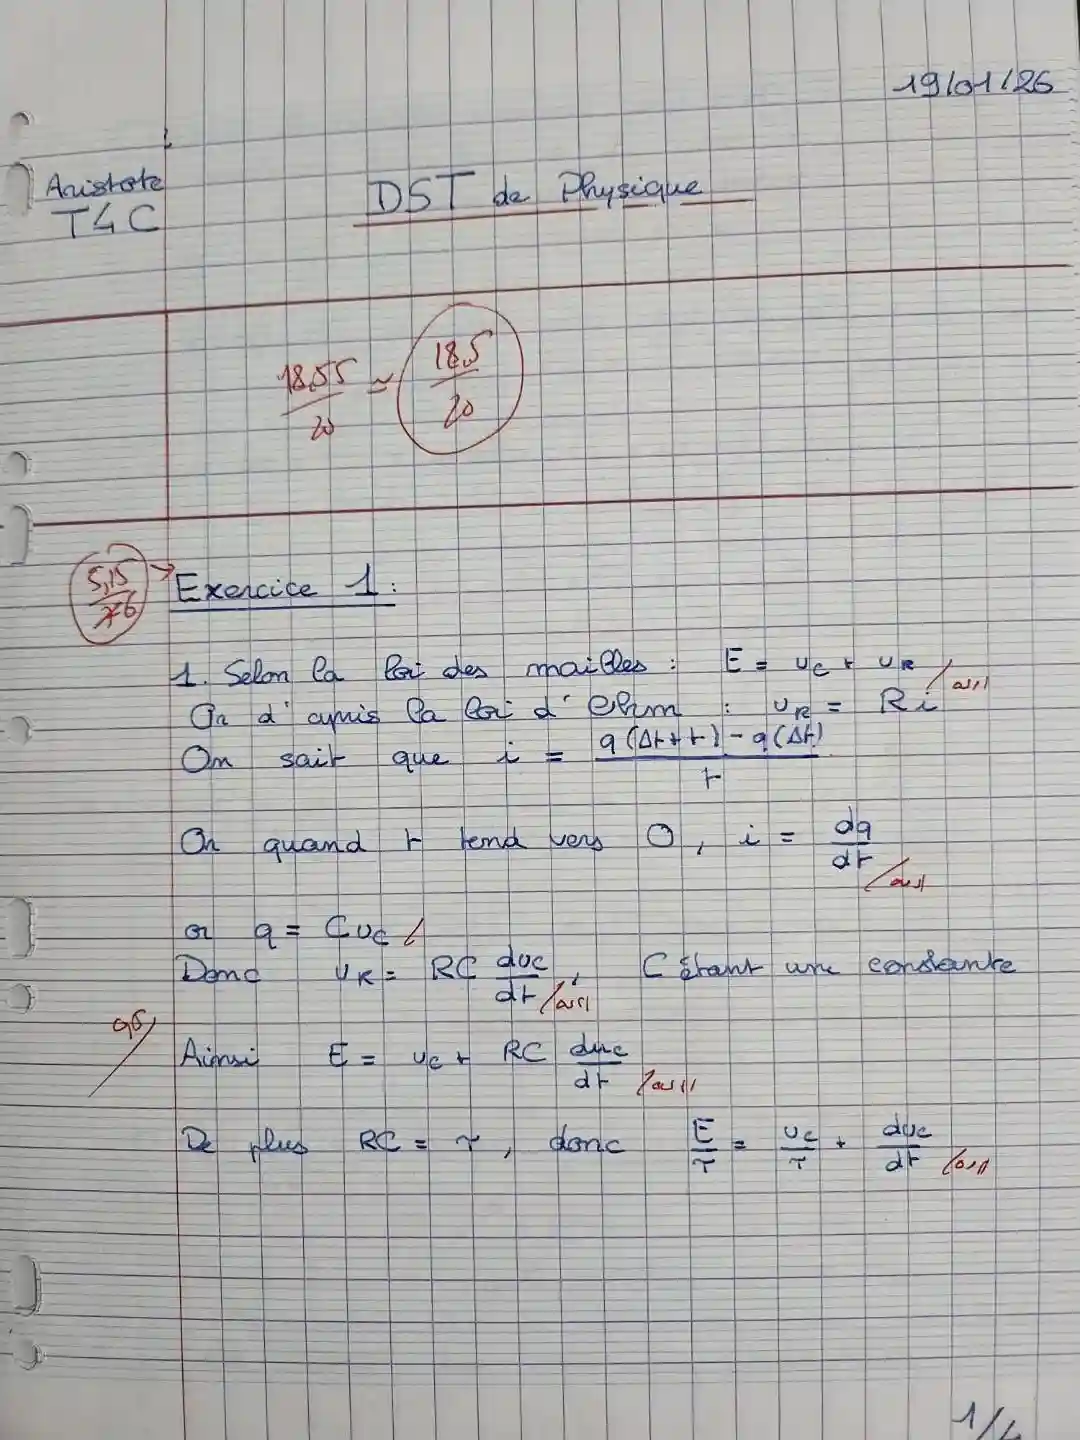 19/01/26
Aristote
T4C
DST de Physique
18,55/20 ≃ 18,5/20
5,15/6
Exercice 1 :
1. Selon la loi des mailles : E = uc + uR
Or d'après la loi d'Ohm : uR = Ri
On sait que i = (q(Δt+t) - q(Δt))/t
Or quand t tend vers 0, i = dq/dt
or q = Cuc
Donc uR = RC duc/dt, C étant une constante
Ainsi E = uc + RC duc/dt
De plus RC = τ, donc E/τ = uc/τ + duc/dt